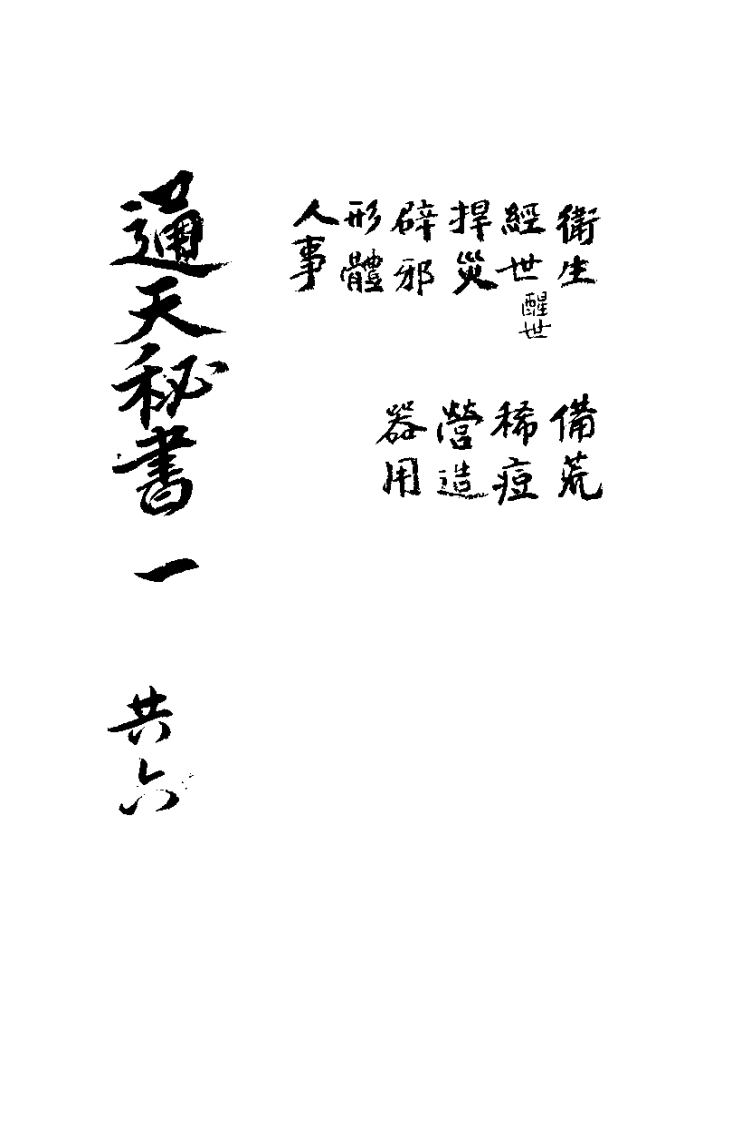 衛生
經世醒世
捍災
辟邪
形體
人事
備荒
稀痘
營造
器用
通天秘書
一
共六